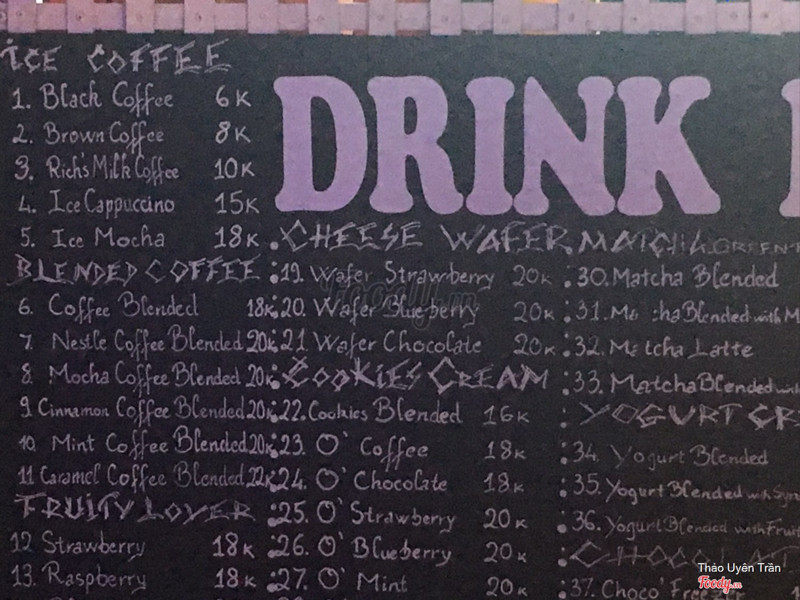 DRINK
ICE COFFEE
1. Black Coffee 6K
2. Brown Coffee 8K
3. Rich's Milk Coffee 10K
4. Ice Cappuccino 15K
5. Ice Mocha 18K
BLENDED COFFEE
6. Coffee Blended 18K
7. Nestle Coffee Blended 20K
8. Mocha Coffee Blended 20K
9. Cinnamon Coffee Blended 20K
10. Mint Coffee Blended 20K
11 Caramel Coffee Blended 22K
FRUITY LOVER
12 Strawberry 18K
13. Raspberry 18K
CHEESE WAFER
19. Wafer Strawberry 20K
20. Wafer Blueberry 20K
21 Wafer Chocolate 20K
COOKIES CREAM
22. Cookies Blended 16K
23. O' Coffee 18K
24. O' Chocolate 18K
25. O' Strawberry 20K
26. O' Blueberry 20K
27. O' Mint 20K
MATCHA GREEN
30. Matcha Blended
31. Matcha Blended with M
32. Matcha Latte
33. Matcha Blended with
YOGURT
34. Yogurt Blended
35. Yogurt Blended with
36. Yogurt Blended with Fruit
37. Choco'
Foody.vn
Thảo Uyên Trân
Foody.vn